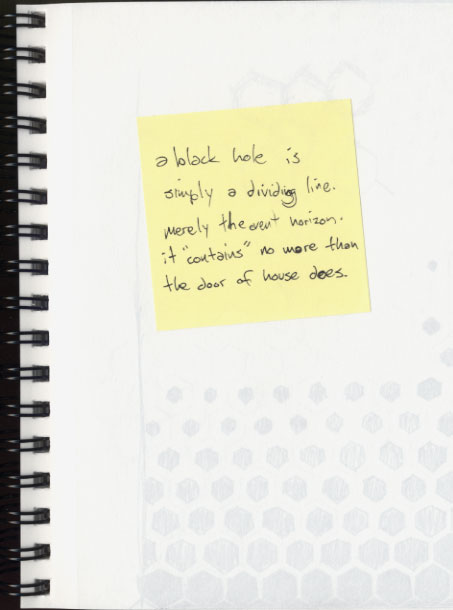 a black hole is
simply a dividing line.
merely the event horizon.
it "contains" no more than
the door of house does.